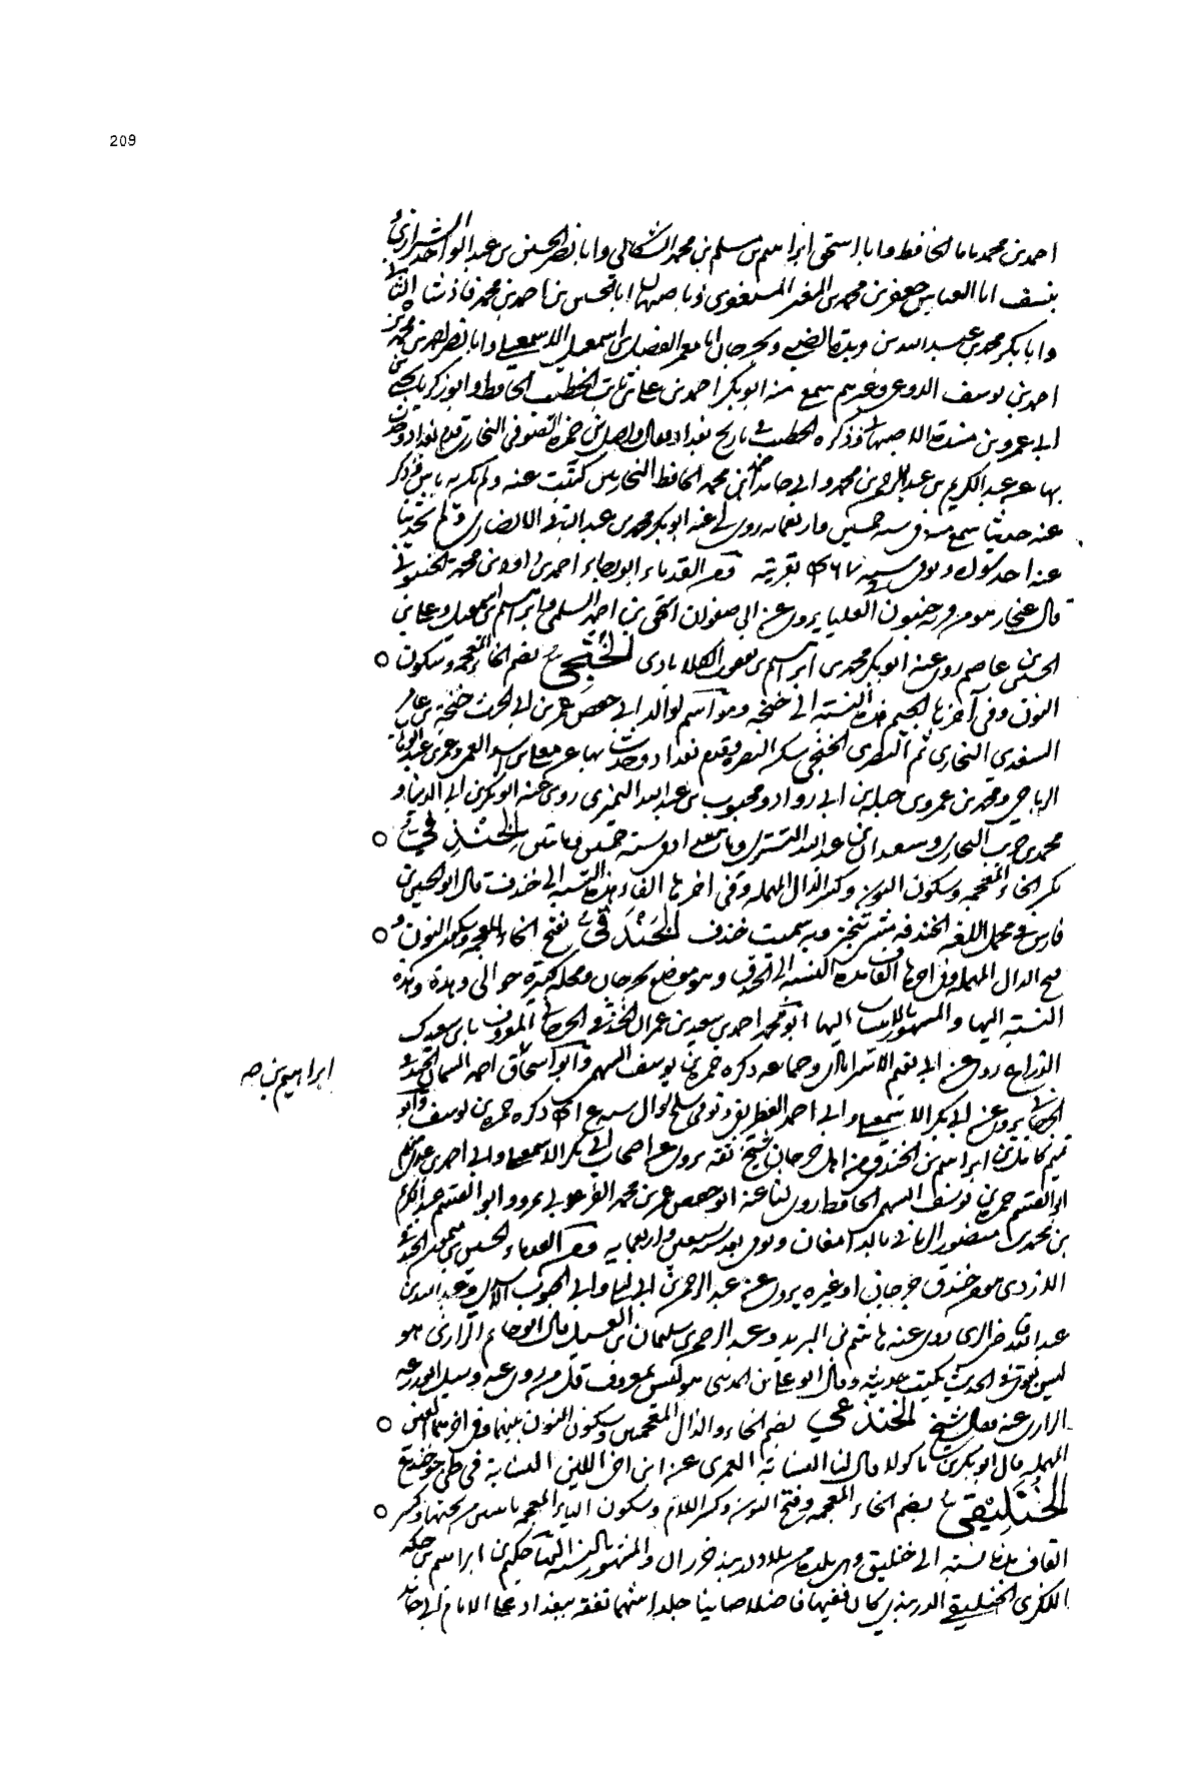 209
احمد بن محمد بابا الحافظ وابا اسحق ابراهيم بن مسلم بن محمد الشكالى وابا نصر الحسن بن عبد الواحد الشيرازى
بنسف ابا العباس جعفر بن محمد بن المعتز المستغفرى وباصبهان ابا الحسن بن احمد بن محمد فاذشاه
وابا بكر محمد بن عبد الله بن ريذة الضبى وبجرجان ابا معمر الفضل بن اسمعيل الاسمعيلى وابا نصر محمد بن
احمد بن يوسف وغيرهم سمع منه ابو بكر احمد بن على بن ثابت الخطيب الحافظ وابو زكريا يحيى بن
ابى عمرو بن مندة الاصبهانى وذكره الخطيب فى تاريخ بغداد فقال واصل بن حمزة الصوفى البخارى قدم بغداد وحدث
بها عن عبد الكريم بن عبد الرحمن بن محمد وابى حامد بن محمد الحافظ البخاريين كتبت عنه ولم يكن به باس وذكر
عنه حديثا سمع منه فى سنة خمسين واربعمائة روى لى عنه ابو بكر محمد بن عبد الباقى الانصارى ولم يحدثنا
عنه احد سواه وتوفى سنة ٤٦٧ بقريته ومن القدماء ابو رجاء احمد بن داود بن محمد الخنبونى
قال غنجار هو من قرية خنبون العليا يروى عن ابى صفوان اسحق بن احمد السلمى وابراهيم بن اسمعيل وعلى بن
الحسن بن عاصم روى عنه ابو بكر محمد بن ابراهيم بن يعقوب الكلاباذى الخُنْبجى بضم الخاء المعجمة وسكون ○
النون وفى آخرها الجيم هذه النسبة الى خنجة وهو اسم لوالد ابى حفص عمر بن ابى الحرث خنجة بن عامر
السغدى البخارى ثم البصرى الخنجى سكن البصرة وقدم بغداد وحدث بها عن معلى بن اسد العمى وعمرو بن عبد الوهاب
الرياحى ومحمد بن عمرو بن جبلة بن ابى رواد ومحبوب بن عبد الله النميرى روى عنه ابو بكر بن ابى الدنيا و
محمد بن حريث البخارى وسعدان بن عبد الله التسترى ومات سنة خمسين ومائتين الخِنْدِفى ○
بكسر الخاء المعجمة وسكون النون وكسر الدال المهملة وفى اخرها الفاء هذه النسبة الى خندف قال ابو الحسين بن
فارس فى مجمل اللغة الخندفة مشى تبختر وبه سميت خندف الخَنْدَقى بفتح الخاء المعجمة وسكون النون و ○
فتح الدال المهملة وفى اخرها القاف هذه النسبة الى الخندق وهو موضع بجرجان ومحلة كبيرة حوالى وهدة وهذه
النسبة اليها والمشهور بالانتساب اليها ابو محمد احمد بن سعيد بن عمران الخندقى الجرجانى المعروف بابى سعيدك
الذراع روى عن ابى نعيم الاستراباذى وجماعة ذكره حمزة بن يوسف السهمى وابو اسحاق احمد الخندقى
ابراهيم بن صح
الجرجانى يروى عن ابى بكر الاسمعيلى وابى احمد الغطريفى وتوفى سلخ شوال ذكره حمزة بن يوسف وابو
تميم كامل بن ابراهيم بن الخندقى من اهل جرجان شيخ ثقة يروى عن اصحاب ابى بكر الاسمعيلى وابى احمد بن عدى مثل
ابى القسم حمزة بن يوسف السهمى الحافظ روى لنا عنه ابو حفص عمر بن محمد الفرغولى بمرو وابو القسم عبد الكريم
بن محمد بن منصور الرمانى بالدامغان وتوفى بعد سنة سبعين واربعمائة ومن القدماء الحسين بن محمد الخندقى
الازدى هو من خندق جرجان او غيره يروى عن عبد الرحمن بن ابى ليلى وابى الجنوب الاسدى وعبد الله بن
عبد الله الرازى روى عنه هاشم بن البريد وعبد الرحمن بن سليمان بن الغسيل قال ابو حاتم الرازى هو
ليس بقوى الحديث يكتب حديثه وقال ابو على بن المدينى هو ليس بمعروف قل من روى عنه وسئل ابو زرعة
الرازى عنه فقال شيخ الخنذعى بضم الخاء والذال المعجمتين وسكون النون بينهما وفى اخرها العين ○
المهملة قال ابو نصر بن ماكولا قال لنا النسابة العمرى عن ابن اخى اللبن النسابة فى طى خنذع
الخُنَلِيقى بضم الخاء المعجمة وفتح النون وكسر اللام وسكون الياء المعجمة باثنتين من تحتها وكسر ○
القاف هذه نسبة الى خنليق وهى بلدة من بلاد دربند خزران والمشهور بالنسبة اليها حكيم بن ابراهيم بن حكيم
اللكزى الخنليقى الدربندى كان فقيها فاضلا صائبا جلدا شهما تفقه ببغداد على الامام ابى حامد